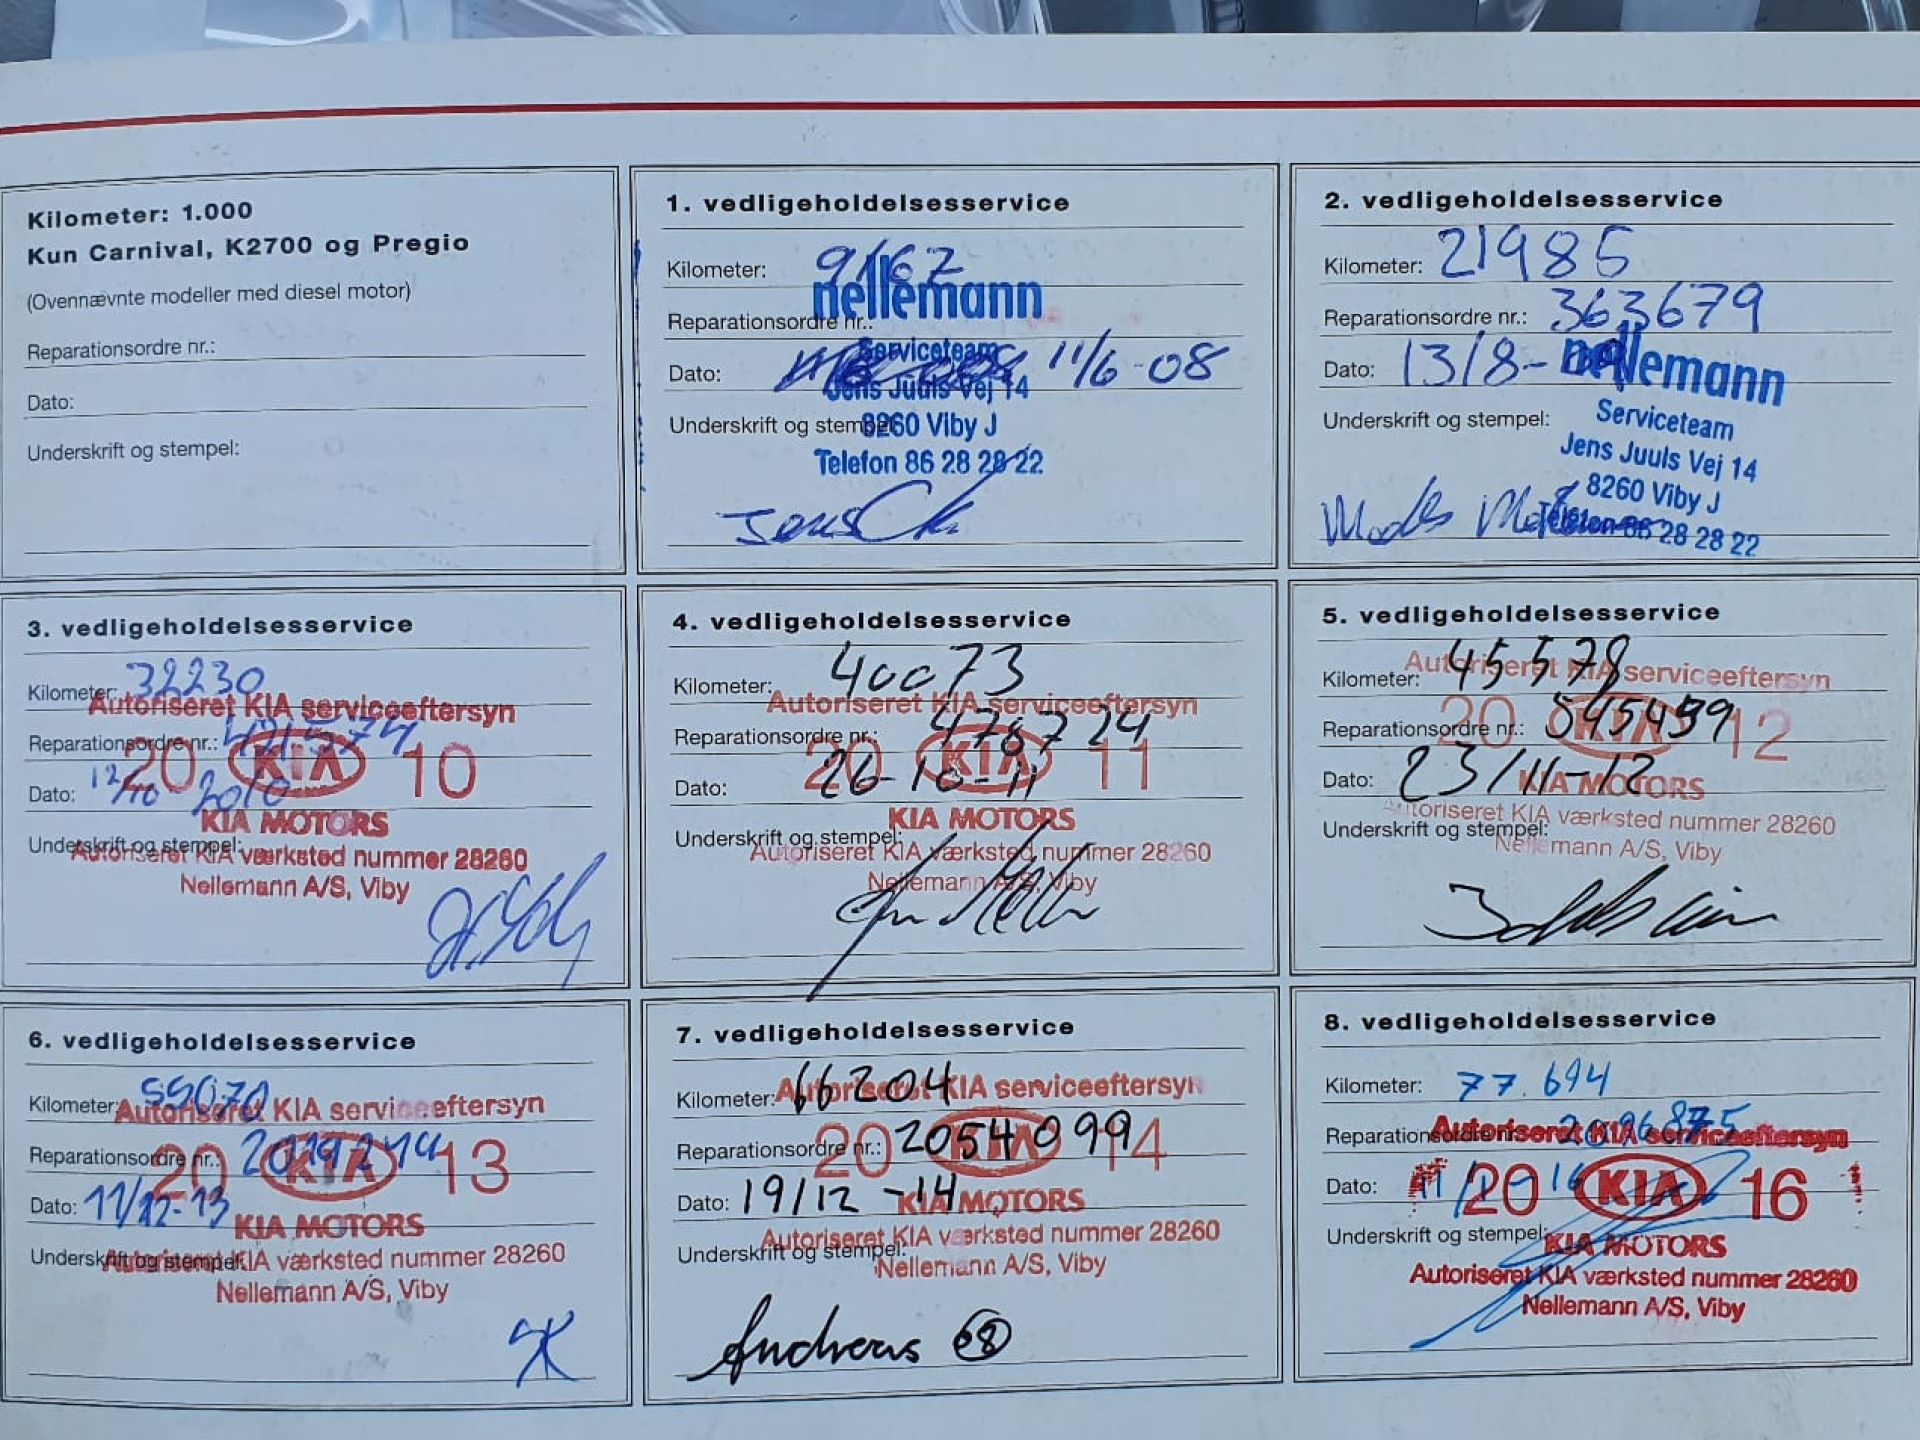 Kilometer: 1.000
Kun Carnival, K2700 og Pregio
(Ovennævnte modeller med diesel motor)
Reparationsordre nr.:
Dato:
Underskrift og stempel:
1. vedligeholdelsesservice
Kilometer: 9167
nellemann
Reparationsordre nr.:
Serviceteam
Dato: 11/6-08
Jens Juuls Vej 14
Underskrift og stempel:
8260 Viby J
Telefon 86 28 28 22
2. vedligeholdelsesservice
Kilometer: 21985
Reparationsordre nr.: 363679
Dato: 13/8-
nellemann
Underskrift og stempel:
Serviceteam
Jens Juuls Vej 14
8260 Viby J
Telefon 86 28 28 22
3. vedligeholdelsesservice
Kilometer: 32230
Autoriseret KIA serviceeftersyn
Reparationsordre nr.:
20 KIA 10
Dato: 12/10 2010
KIA MOTORS
Underskrift og stempel:
Autoriseret KIA værksted nummer 28260
Nellemann A/S, Viby
4. vedligeholdelsesservice
Kilometer: 40073
Autoriseret KIA serviceeftersyn
Reparationsordre nr.: 478724
20 KIA 11
Dato: 26-10-11
KIA MOTORS
Underskrift og stempel:
Autoriseret KIA værksted nummer 28260
Nellemann A/S, Viby
5. vedligeholdelsesservice
Kilometer: 45578
Autoriseret KIA serviceeftersyn
Reparationsordre nr.: 545459
20 KIA 12
Dato: 23/11-12
KIA MOTORS
Autoriseret KIA værksted nummer 28260
Underskrift og stempel:
Nellemann A/S, Viby
6. vedligeholdelsesservice
Kilometer: 55070
Autoriseret KIA serviceeftersyn
Reparationsordre nr.: 2019214
20 KIA 13
Dato: 11/12-13
KIA MOTORS
Underskrift og stempel:
Autoriseret KIA værksted nummer 28260
Nellemann A/S, Viby
SK
7. vedligeholdelsesservice
Kilometer: 66204
Autoriseret KIA serviceeftersyn
Reparationsordre nr.: 2054099
20 KIA 14
Dato: 19/12-14
KIA MOTORS
Autoriseret KIA værksted nummer 28260
Underskrift og stempel:
Nellemann A/S, Viby
Andreas 68
8. vedligeholdelsesservice
Kilometer: 77.694
Reparationsordre nr.: 2096875
Autoriseret KIA serviceeftersyn
Dato: 11/1-16
20 KIA 16
Underskrift og stempel:
KIA MOTORS
Autoriseret KIA værksted nummer 28260
Nellemann A/S, Viby